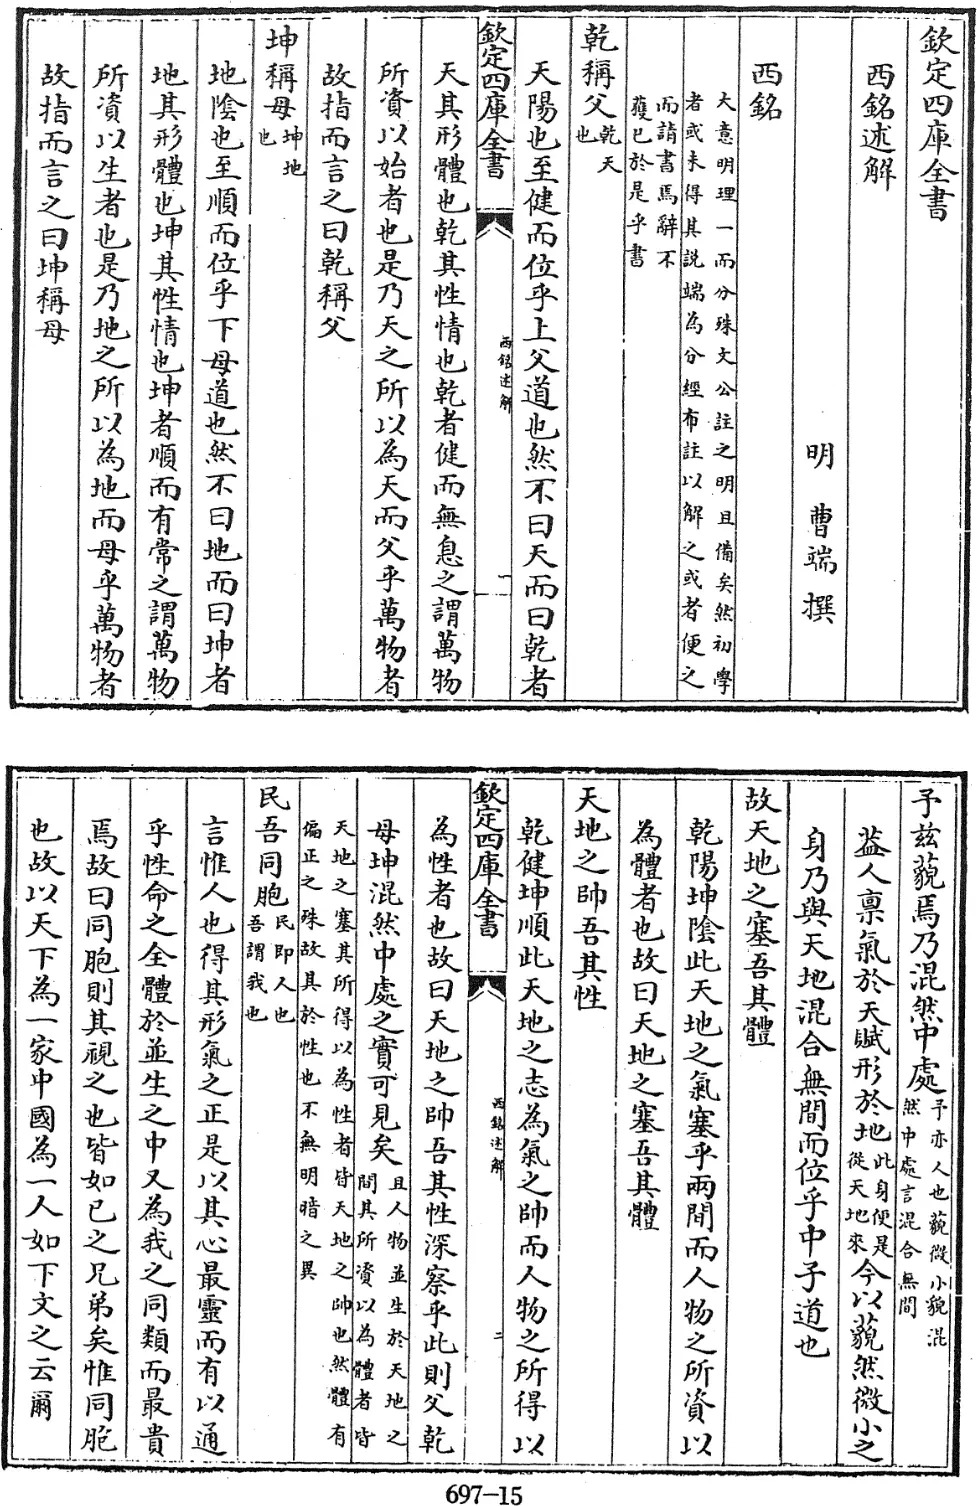 欽定四庫全書
西銘述解
明 曹端 撰
西銘
大意明理一而分殊文公註之明且備矣然初學
者或未得其説端為分經布註以解之或者便之
而請書焉辭不
獲已於是乎書
乾稱父乾天也
天陽也至健而位乎上父道也然不曰天而曰乾者
欽定四庫全書
西銘述解
一
天其形體也乾其性情也乾者健而無息之謂萬物
所資以始者也是乃天之所以為天而父乎萬物者
故指而言之曰乾稱父
坤稱母坤地也
地陰也至順而位乎下母道也然不曰地而曰坤者
地其形體也坤其性情也坤者順而有常之謂萬物
所資以生者也是乃地之所以為地而母乎萬物者
故指而言之曰坤稱母
予兹藐焉乃混然中處予亦人也藐微小貌混然中處言混合無間
葢人禀氣於天賦形於地此身便是從天地來今以藐然微小之
身乃與天地混合無間而位乎中子道也
故天地之塞吾其體
乾陽坤陰此天地之氣塞乎兩間而人物之所資以
為體者也故曰天地之塞吾其體
天地之帥吾其性
乾健坤順此天地之志為氣之帥而人物之所得以
欽定四庫全書
西銘述解
二
為性者也故曰天地之帥吾其性深察乎此則父乾
母坤混然中處之實可見矣且人物並生於天地之間其所資以為體者皆
天地之塞其所得以為性者皆天地之帥也然體有
偏正之殊故其於性也不無明暗之異
民吾同胞民即人也吾謂我也
言惟人也得其形氣之正是以其心最靈而有以通
乎性命之全體於並生之中又為我之同類而最貴
焉故曰同胞則其視之也皆如己之兄弟矣惟同胞
也故以天下為一家中國為一人如下文之云爾
697-15